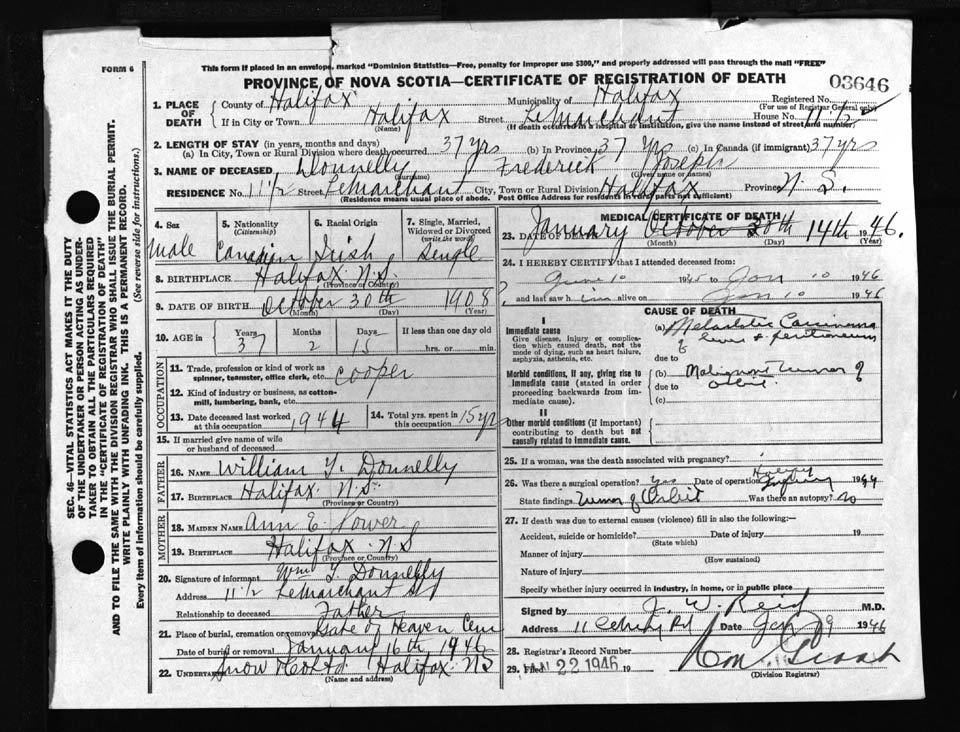 FORM 6
This form if placed in an envelope, marked "Dominion Statistics—Free, penalty for improper use $300," and properly addressed will pass through the mail "FREE"
PROVINCE OF NOVA SCOTIA—CERTIFICATE OF REGISTRATION OF DEATH
03646
1. PLACE OF DEATH
County of Halifax Municipality of Halifax Registered No.
(For use of Registrar General only)
If in City or Town Halifax Street LeMarchant House No. 11 1/2
(Name) (If death occurred in a hospital or institution, give the name instead of street and number)
2. LENGTH OF STAY (in years, months and days)
(a) In City, Town or Rural Division where death occurred 37 yrs (b) In Province 37 yrs (c) In Canada (if immigrant) 37 yrs
3. NAME OF DECEASED Donnelly Frederick Joseph
(Surname) (Given name or names)
RESIDENCE No. 11 1/2 Street LeMarchant City, Town or Rural Division Halifax Province N. S.
(Residence means usual place of abode. Post Office Address for residents in rural parts not sufficient)
4. Sex Male
5. Nationality (Citizenship) Canadian
6. Racial Origin Irish
7. Single, Married, Widowed or Divorced (write the word) Single
8. BIRTHPLACE Halifax N.S.
(Province or Country)
9. DATE OF BIRTH October 30th 1908
(Month) (Day) (Year)
10. AGE in Years 37 Months 2 Days 15 If less than one day old hrs. or min.
OCCUPATION
11. Trade, profession or kind of work as spinner, teamster, office clerk, etc. Cooper
12. Kind of industry or business, as cotton-mill, lumbering, bank, etc.
13. Date deceased last worked at this occupation 1944
14. Total yrs. spent in this occupation 15 yrs
15. If married give name of wife or husband of deceased
FATHER
16. NAME William J. Donnelly
17. BIRTHPLACE Halifax N.S.
(Province or Country)
MOTHER
18. MAIDEN NAME Ann E. Power
19. BIRTHPLACE Halifax N.S
(Province or Country)
20. Signature of informant Wm J. Donnelly
Address 11 1/2 LeMarchant St
Relationship to deceased Father
21. Place of burial, cremation or removal Gate of Heaven Cem
Date of burial or removal January 16th, 1946
22. UNDERTAKER Snow & Co Ltd. Halifax NS
(Name and address)
MEDICAL CERTIFICATE OF DEATH
23. DATE OF DEATH January October 30th 14th 1946.
(Month) (Day) (Year)
24. I HEREBY CERTIFY that I attended deceased from:
June 10 1945 to Jan 10 1946
and last saw him alive on Jan 10 1946
CAUSE OF DEATH
I
Immediate cause
Give disease, injury or complication which caused death, not the mode of dying, such as heart failure, asphyxia, asthenia, etc.
(a) Metastatic Carcinoma of liver & peritoneum
due to
Morbid conditions, if any, giving rise to immediate cause (stated in order proceeding backwards from immediate cause).
(b) Malignant Tumor of orbit.
due to
(c)
II
Other morbid conditions (if important) contributing to death but not causally related to immediate cause.
25. If a woman, was the death associated with pregnancy?
26. Was there a surgical operation? Yes Date of operation 1944
State findings Tumor of Orbit Was there an autopsy? No
27. If death was due to external causes (violence) fill in also the following:—
Accident, suicide or homicide? Date of injury 19
(State which)
Manner of injury
(How sustained)
Nature of injury
Specify whether injury occurred in industry, in home, or in public place
Signed by J. W. Reid M.D.
Address 11 Rd Date Jan 19 1946
28. Registrar's Record Number
29. Filed JAN 22 1946 19
(Division Registrar)
SEC. 46—VITAL STATISTICS ACT MAKES IT THE DUTY OF THE UNDERTAKER OR PERSON ACTING AS UNDERTAKER TO OBTAIN ALL THE PARTICULARS REQUIRED IN THE "CERTIFICATE OF REGISTRATION OF DEATH" AND TO FILE THE SAME WITH THE DIVISION REGISTRAR WHO SHALL ISSUE THE BURIAL PERMIT.
WRITE PLAINLY WITH UNFADING INK. THIS IS A PERMANENT RECORD.
Every item of information should be carefully supplied. (See reverse side for instructions.)